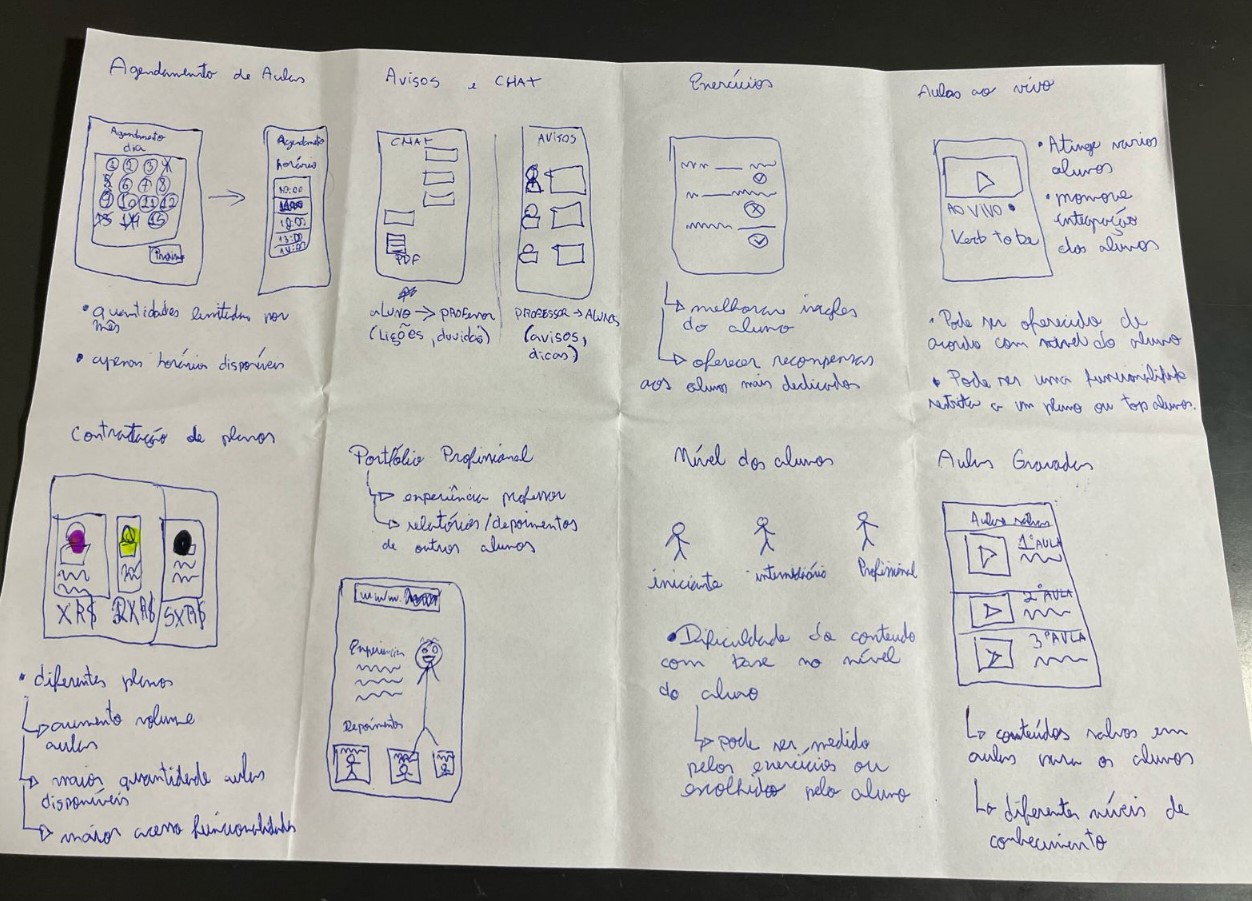 Agendamento de Aulas
Agendamento
dia
1 2 3 4
5 6 7 8
9 10 11 12
13 14 15
Agendamento
horário
10:00
13:00
14:00
• quantidades limitadas por
mês
• apenas horários disponíveis
Avisos e CHAT
CHAT
PDF
AVISOS
aluno → PROFESSOR
(Lições, duvidas)
PROFESSOR → ALUNOS
(avisos,
dicas)
Exercícios
melhorar
do aluno
oferecer recompensas
aos alunos mais dedicados
Aulas ao vivo
AO VIVO •
Verb to be
• Atinge varios
alunos
• promove
integração
dos alunos
• Pode ser oferecido de
acordo com nível do aluno
• Pode ser uma funcionalidade
restrita a um plano ou top alunos.
Contratação de planos
XR$ 2XR$ 5XR$
• diferentes planos
aumento volume
aulas
maior quantidade aulas
disponíveis
maior acesso funcionalidades
Portfólio Profissional
experiência professor
relatórios/depoimentos
de outros alunos
www.
Experiencia
Depoimentos
Nível dos alunos
iniciante intermediário Profissional
• Dificuldade do conteudo
com base no nível
do aluno
pode ser medido
pelos exercícios ou
escolhido pelo aluno
Aulas Gravadas
Aulas salvas
1ª AULA
2ª AULA
3ª AULA
conteúdos salvos em
aulas para os alunos
diferentes níveis de
conhecimento